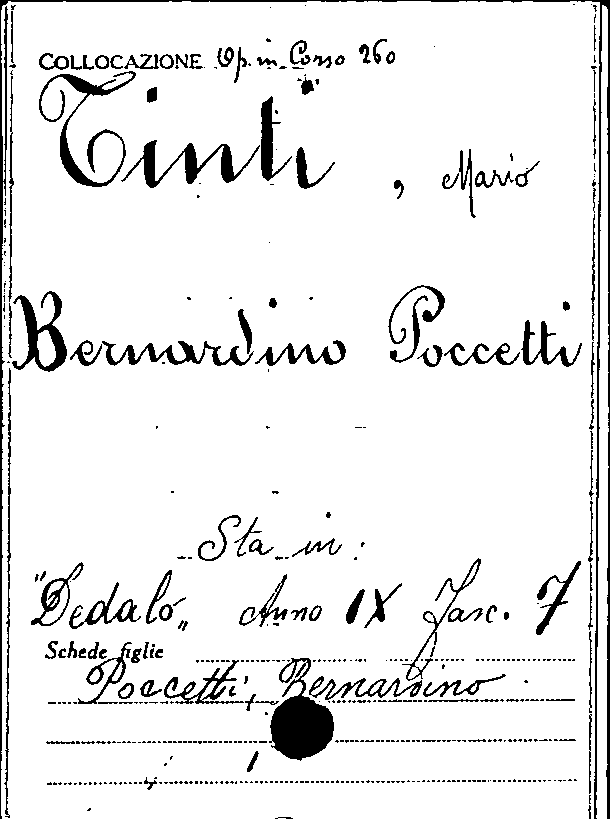 COLLOCAZIONE Op. in Corso 260
Tinti, Mario
Bernardino Poccetti
Sta in:
"Dedalo„ Anno IX Fasc. 7
Schede figlie
Poccetti, Bernardino